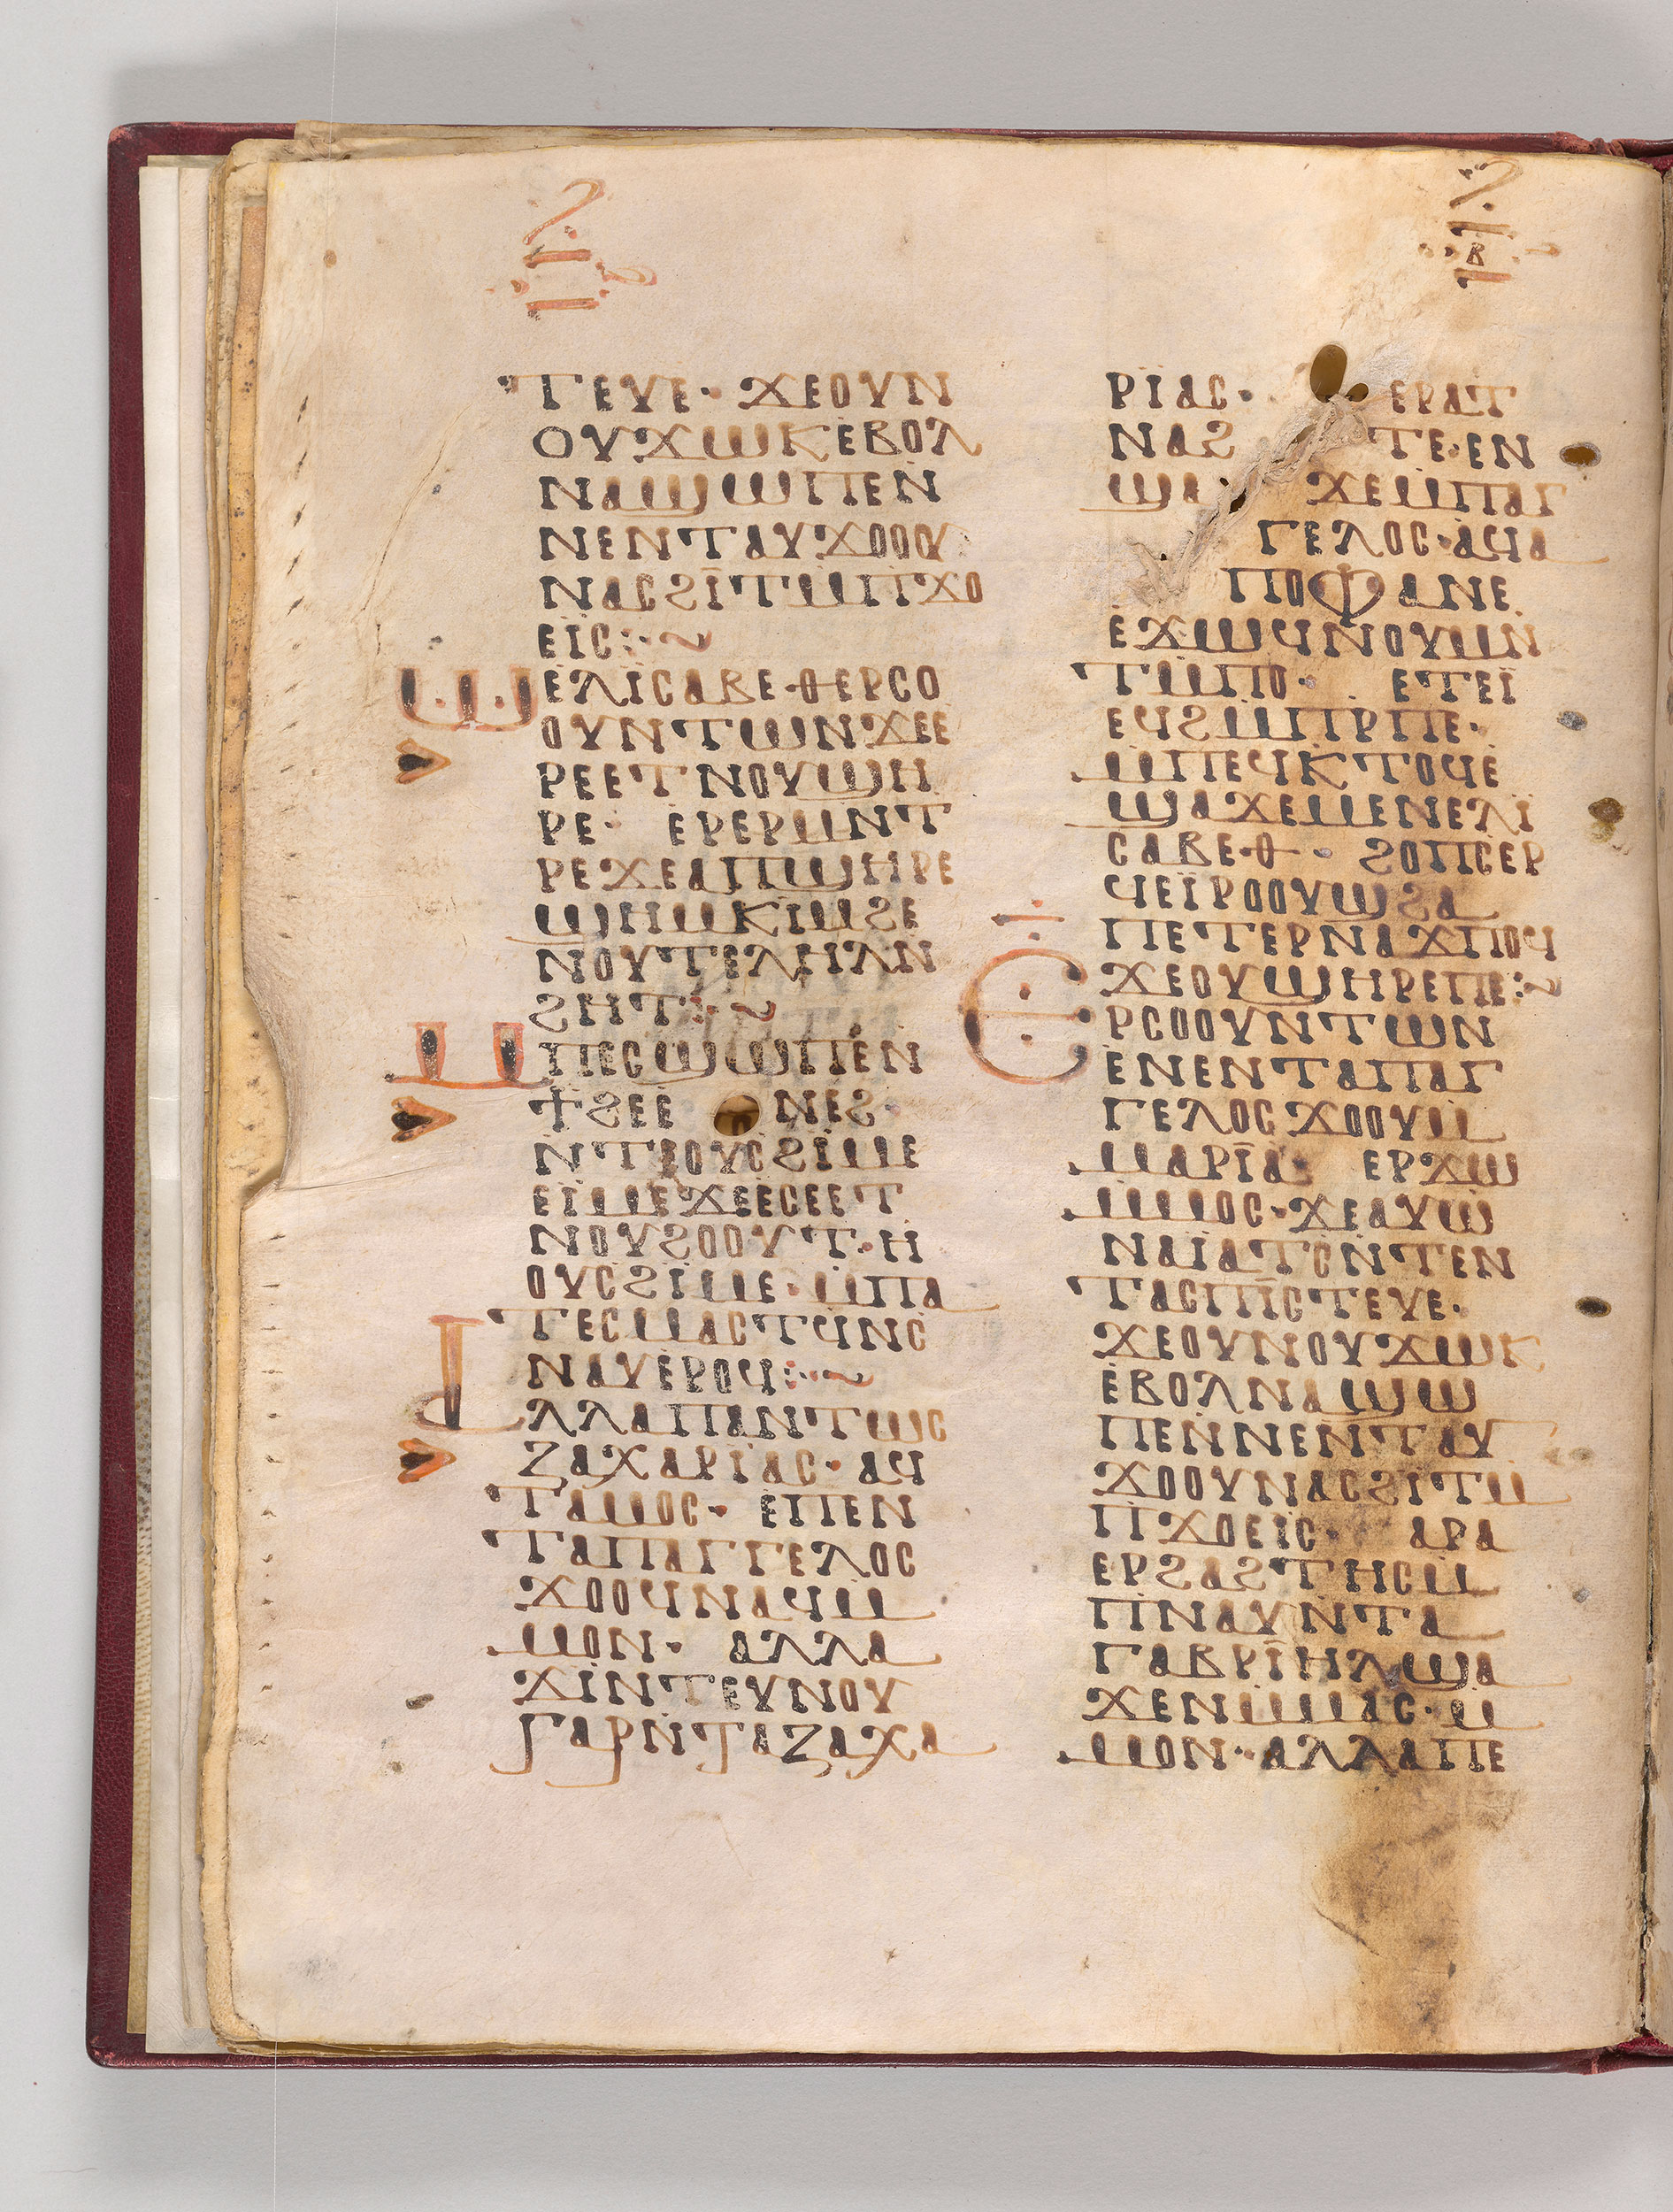 ⲧⲉⲩⲉ· ϫⲉⲟⲩⲛ
ⲟⲩϫⲱⲕⲉⲃⲟⲗ
ⲛⲁϣⲱⲡⲉⲛ
ⲛⲉⲛⲧⲁⲩϫⲟⲟⲩ
ⲛⲁⲥϩⲓ̈ⲧⲙⲡϫⲟ
ⲉⲓ̈ⲥ:~
ⲱⲉⲗⲓ̈ⲥⲁⲃⲉ·ⲑⲉⲣⲥⲟ
ⲟⲩⲛⲧⲱⲛϫⲉⲉ
ⲣⲉⲉⲧⲛⲟⲩϣⲏ
ⲣⲉ· ⲉⲣⲉⲣⲙⲛⲧ
ⲣⲉϫⲉⲁⲡϣⲏⲣⲉ
ϣⲏⲙⲕⲓⲙϩⲉ
ⲛⲟⲩⲧⲉⲗⲏⲗⲛ
ϩⲏⲧ:~
ⲙⲡⲉⲥϣⲱⲡⲉⲛ
ϯϩⲉⲉ ⲛⲉϩ·
ⲛⲧⲟⲩⲥϩⲓⲙⲉ
ⲉⲓ̈ⲙⲉϫⲉⲉⲥⲉⲉⲧ
ⲛⲟⲩϩⲟⲟⲩⲧ·ⲏ
ⲟⲩⲥϩⲓ̈ⲙⲉ·ⲙⲡⲁ
ⲧⲉⲥⲙⲁⲥⲧϥⲛⲥ
ⲛⲁⲩⲉⲣⲟϥ:~
ⲁⲗⲗⲁⲡⲁⲛⲧⲱⲥ
ⲍⲁⲭⲁⲣⲓ̈ⲁⲥ·ⲁϥ
ⲧⲁⲙⲟⲥ· ⲉⲡⲉⲛ
ⲧⲁⲡⲁⲅⲅⲉⲗⲟⲥ
ϫⲟⲟϥⲛⲁϥⲙ
ⲙⲟⲛ· ⲁⲗⲗⲁ
ϫⲓⲛⲧⲉⲩⲛⲟⲩ
ⲅⲁⲣⲛⲧⲁⲍⲁⲭⲁ
ⲓⲃ
ⲣⲓ̈ⲁⲥ· ⲉⲣⲁⲧ
ⲛⲁϩ ⲧⲉ·ⲉⲛ
ϣⲁ ϫⲉⲙⲡⲁⲅ
ⲅⲉⲗⲟⲥ·ⲁϥⲁ
ⲡⲟⲫⲁⲛⲉ
ⲉϫⲱϥⲛⲟⲩⲙⲛ
ⲧⲙⲡⲟ· ⲉⲧⲉⲓ̈
ⲉϥϩⲙⲡⲣⲡⲉ·
ⲙⲡⲉϥⲕⲧⲟϥⲉ
ϣⲁϫⲉⲙⲉⲛⲉⲗⲓ̈
ⲥⲁⲃⲉ·ⲑ· ϩⲟⲡⲥⲉⲣ
ϥⲉⲓ̈ⲣⲟⲟⲩϣϩⲁ
ⲡⲉⲧⲉⲣⲛⲁϫⲡⲟϥ
ϫⲉⲟⲩϣⲏⲣⲉⲡⲉ:~
ⲉⲣⲥⲟⲟⲩⲛⲧⲱⲛ
ⲉⲛⲉⲛⲧⲁⲡⲁⲅ
ⲅⲉⲗⲟⲥϫⲟⲟⲩⲙ
ⲙⲁⲣⲓ̈ⲁ· ⲉⲣϫⲱ
ⲙⲙⲟⲥ·ϫⲉⲁⲩⲱ
ⲛⲁⲓⲁⲧⲥⲛⲧⲉⲛ
ⲧⲁⲥⲡⲓ̈ⲥⲧⲉⲩⲉ·
ϫⲉⲟⲩⲛⲟⲩϫⲱⲕ
ⲉⲃⲟⲗⲛⲁϣⲱ
ⲡⲉⲛⲛⲉⲛⲧⲁⲩ
ϫⲟⲟⲩⲛⲁⲥϩⲓⲧⲙ
ⲡϫⲟⲉⲓⲥ· ⲁⲣⲁ
ⲉⲣϩⲁϩⲧⲏⲥⲙ
ⲡⲛⲁⲩⲛⲧⲁ
ⲅⲁⲃⲣⲓ̈ⲏⲗϣⲁ
ϫⲉⲛⲙⲙⲁⲥ·ⲙ
ⲙⲟⲛ·ⲁⲗⲗⲁⲡⲉ